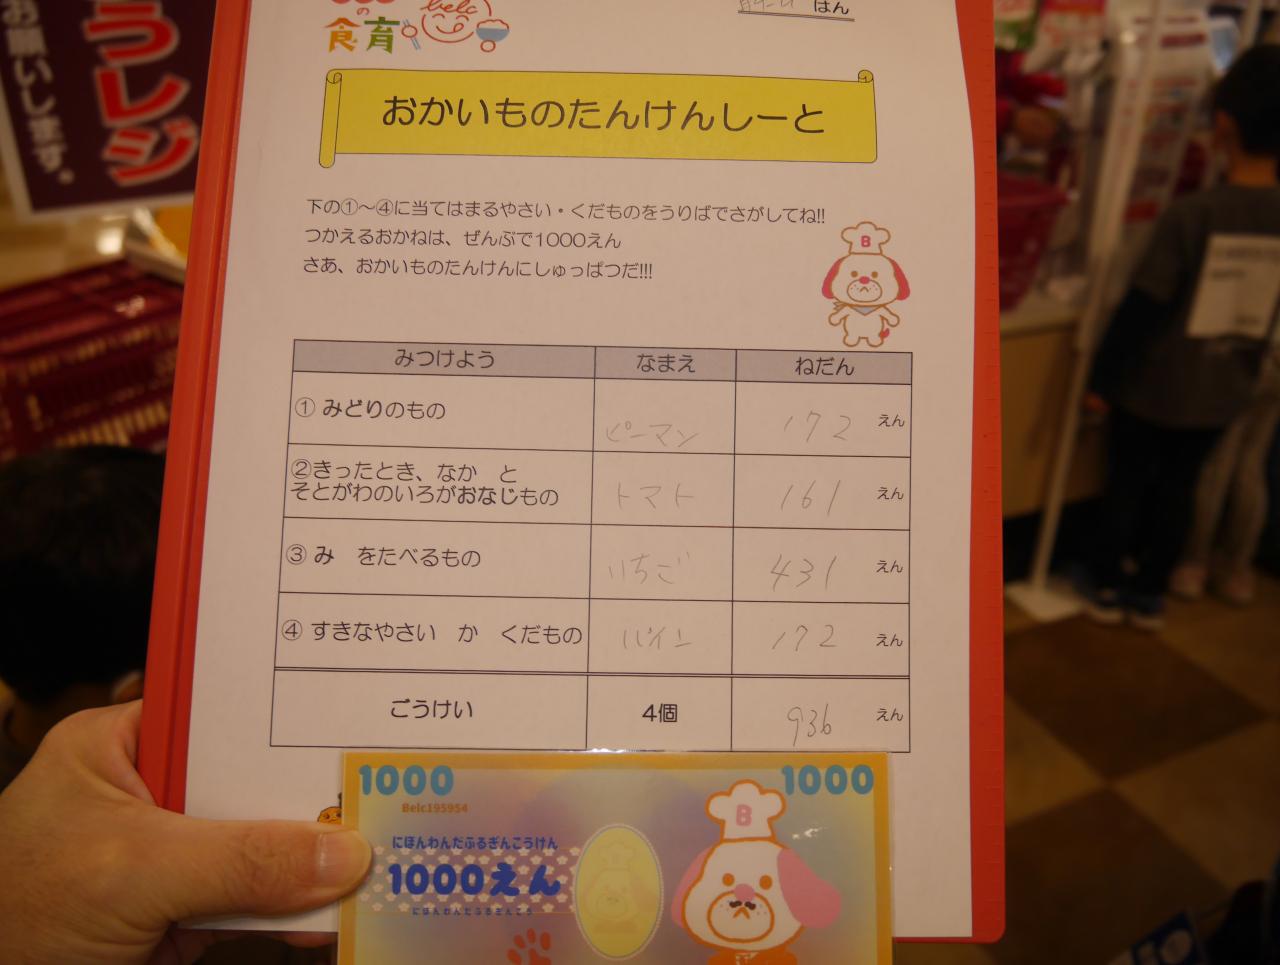 うレジ
お願いします。
の
belc
食育
はん
おかいものたんけんしーと
下の①〜④に当てはまるやさい・くだものをうりばでさがしてね!!
つかえるおかねは、ぜんぶで1000えん
さあ、おかいものたんけんにしゅっぱつだ!!!
B
みつけよう なまえ ねだん
① みどりのもの ピーマン 172 えん
②きったとき、なか と
そとがわのいろがおなじもの トマト 161 えん
③ み をたべるもの いちご 431 えん
④ すきなやさい か くだもの パイン 172 えん
ごうけい 4個 936 えん
1000 1000
Belc195954
B
にほんわんだふるぎんこうけん
1000えん
にほんわんだふるぎんこう